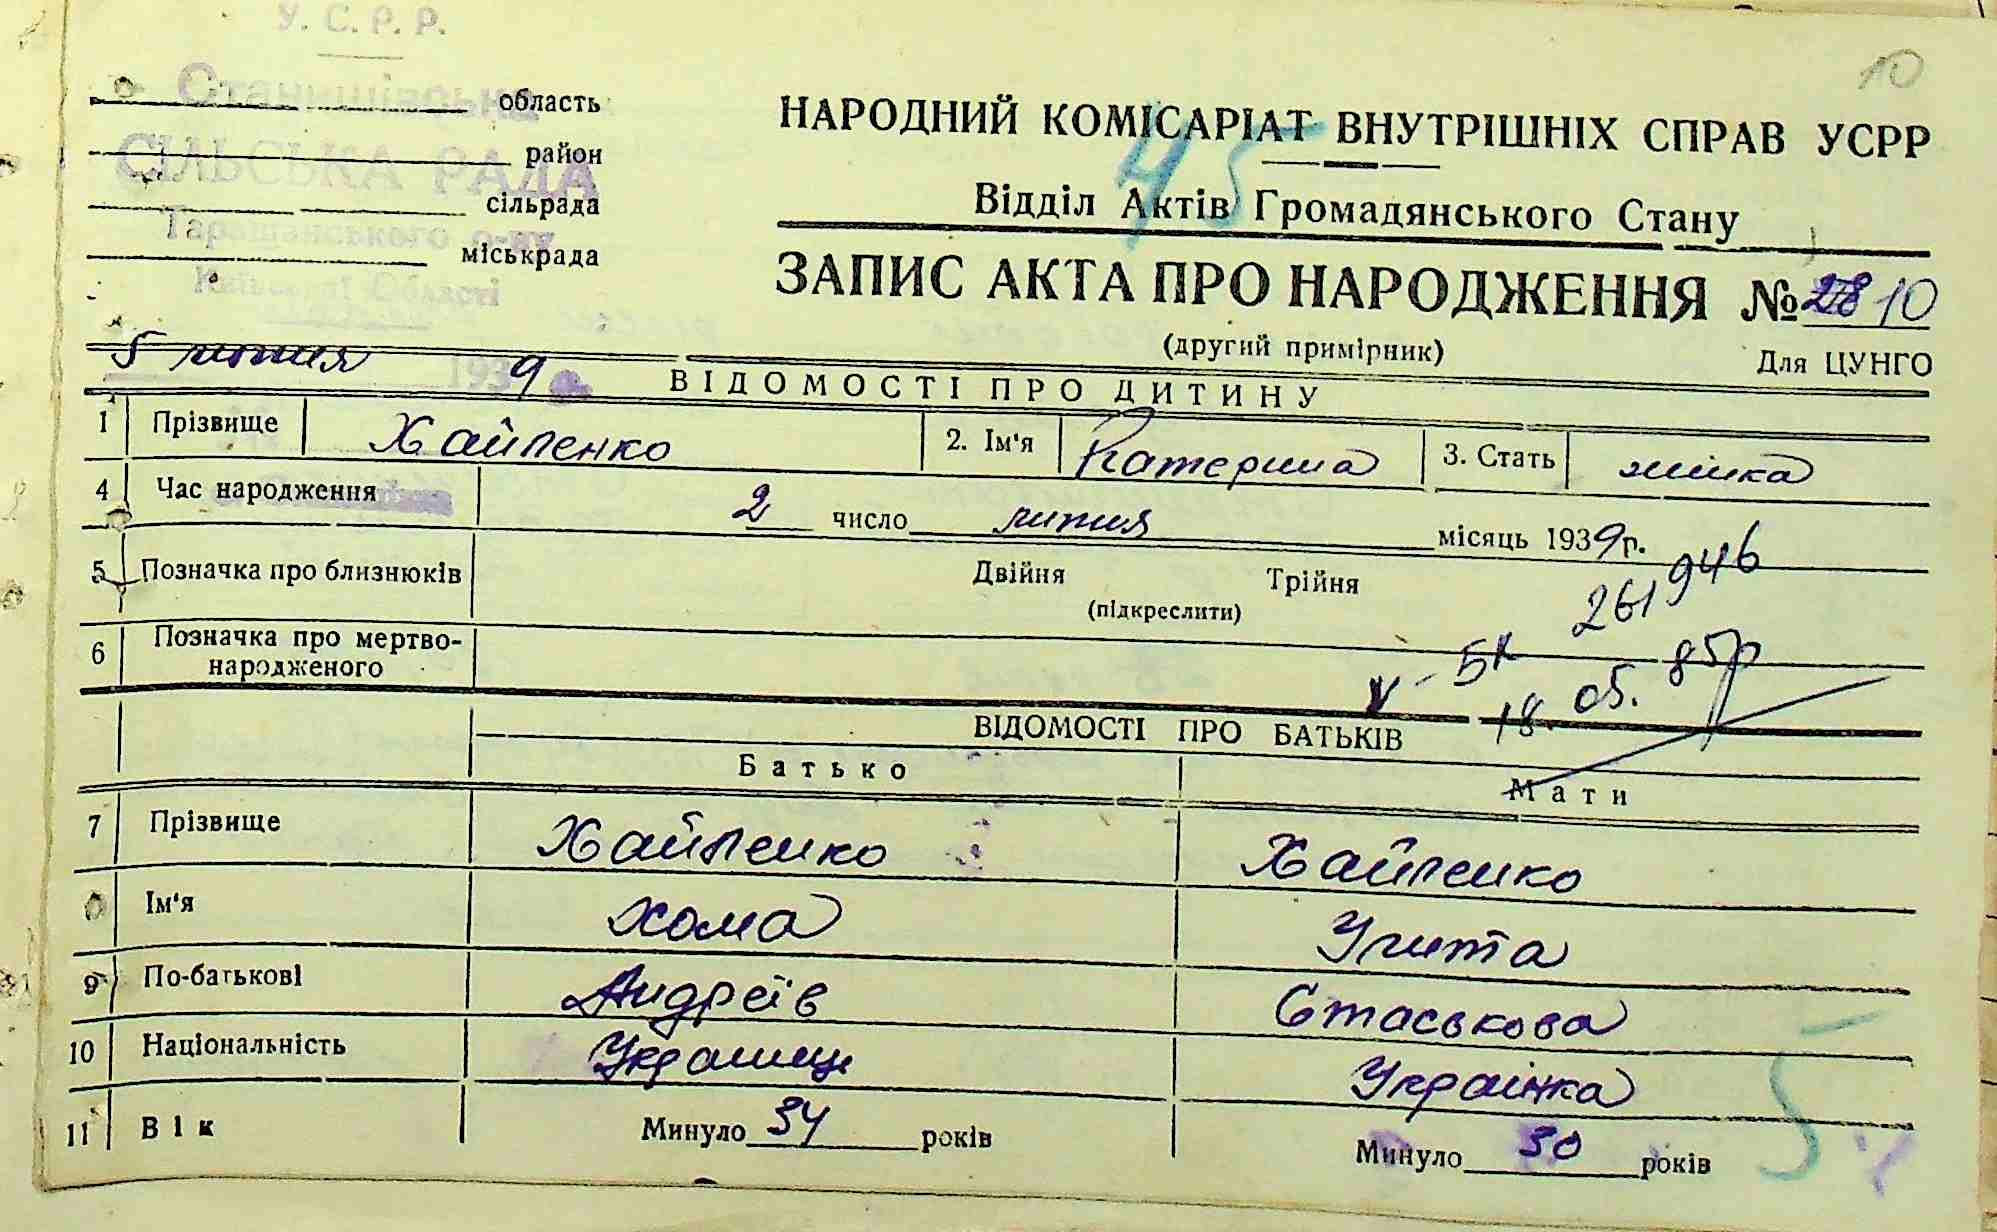 У. С. Р. Р.
10
Станишівська
область
СІЛЬСЬКА РАДА
район
сільрада
Таращанського р-ну
міськрада
Київської Області
НАРОДНИЙ КОМІСАРІАТ ВНУТРІШНІХ СПРАВ УСРР
45
Відділ Актів Громадянського Стану
ЗАПИС АКТА ПРО НАРОДЖЕННЯ № 28 10
(другий примірник) Для ЦУНГО
5 липня 1939
ВІДОМОСТІ ПРО ДИТИНУ
1 Прізвище Хайленко 2. Ім'я Катерина 3. Стать жінка
4 Час народження 2 число липня місяць 1939 р.
5 Позначка про близнюків Двійня Трійня
(підкреслити)
261946
6 Позначка про мертво-
народженого
V-БК
18.05.85р
ВІДОМОСТІ ПРО БАТЬКІВ
Батько Мати
7 Прізвище Хайленко Хайленко
8 Ім'я Хома Улита
9 По-батькові Андреїв Стаськова
10 Національність Українець Українка
11 Вік Минуло 34 років Минуло 30 років
5